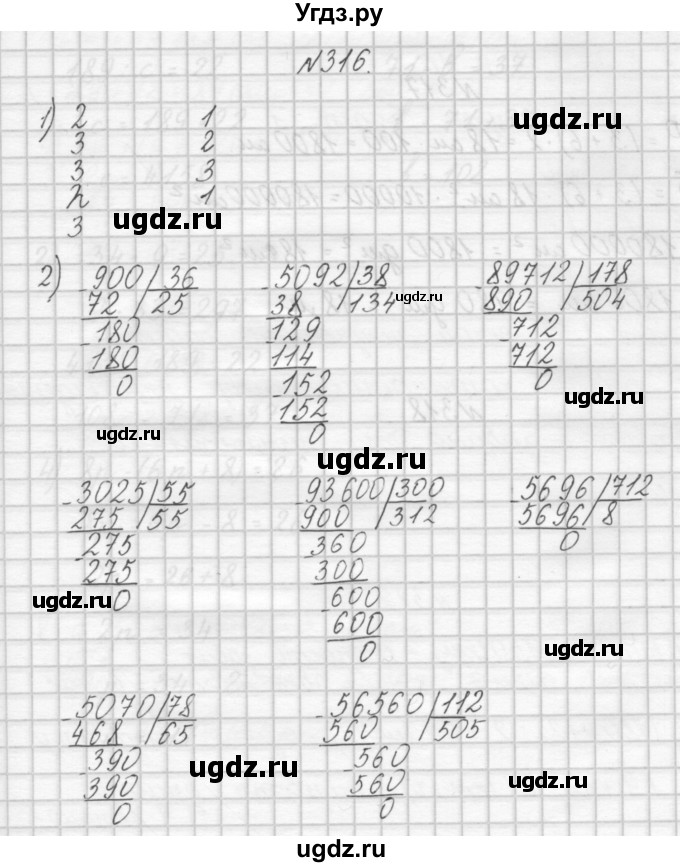 Угдз.ру
N316.
1) 2 1
3 2
3 3
2 1
3
ugdz.ru
ugdz.ru
2) 900 36
72 25
180
180
0
5092 38
38 134
129
114
152
152
0
ugdz.ru
89712 178
890 504
712
712
0
ugdz.ru
ugdz.ru
ugdz.ru
3025 55
275 55
275
275
0
ugdz.ru
93600 300
900 312
360
300
600
600
0
5696 712
5696 8
0
ugdz.ru
5070 78
468 65
390
390
0
ugdz.ru
56560 112
560 505
560
560
0
ugdz.ru
ugdz.ru